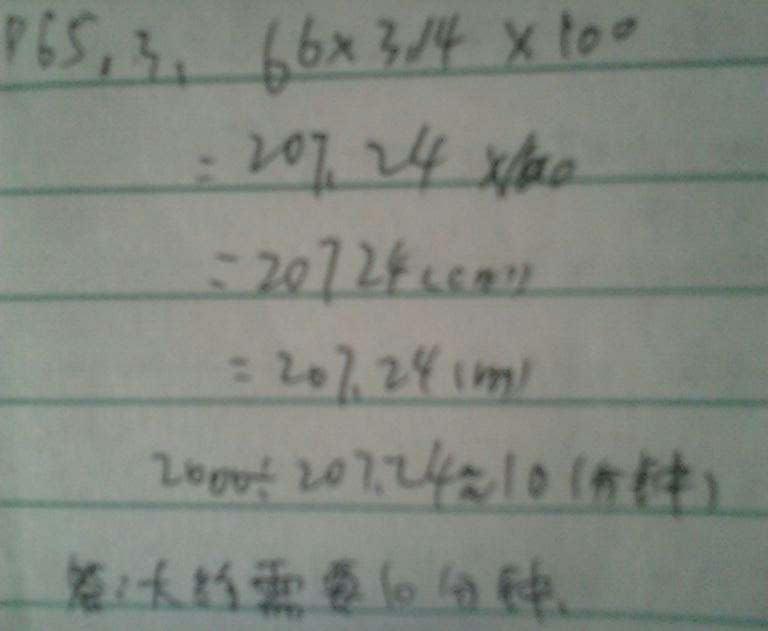 P65, 3, 66×3.14×100
=207.24×100
=20724(cm)
=207.24(m)
2000÷207.24≈10(分钟)
答:大约需要10分钟.